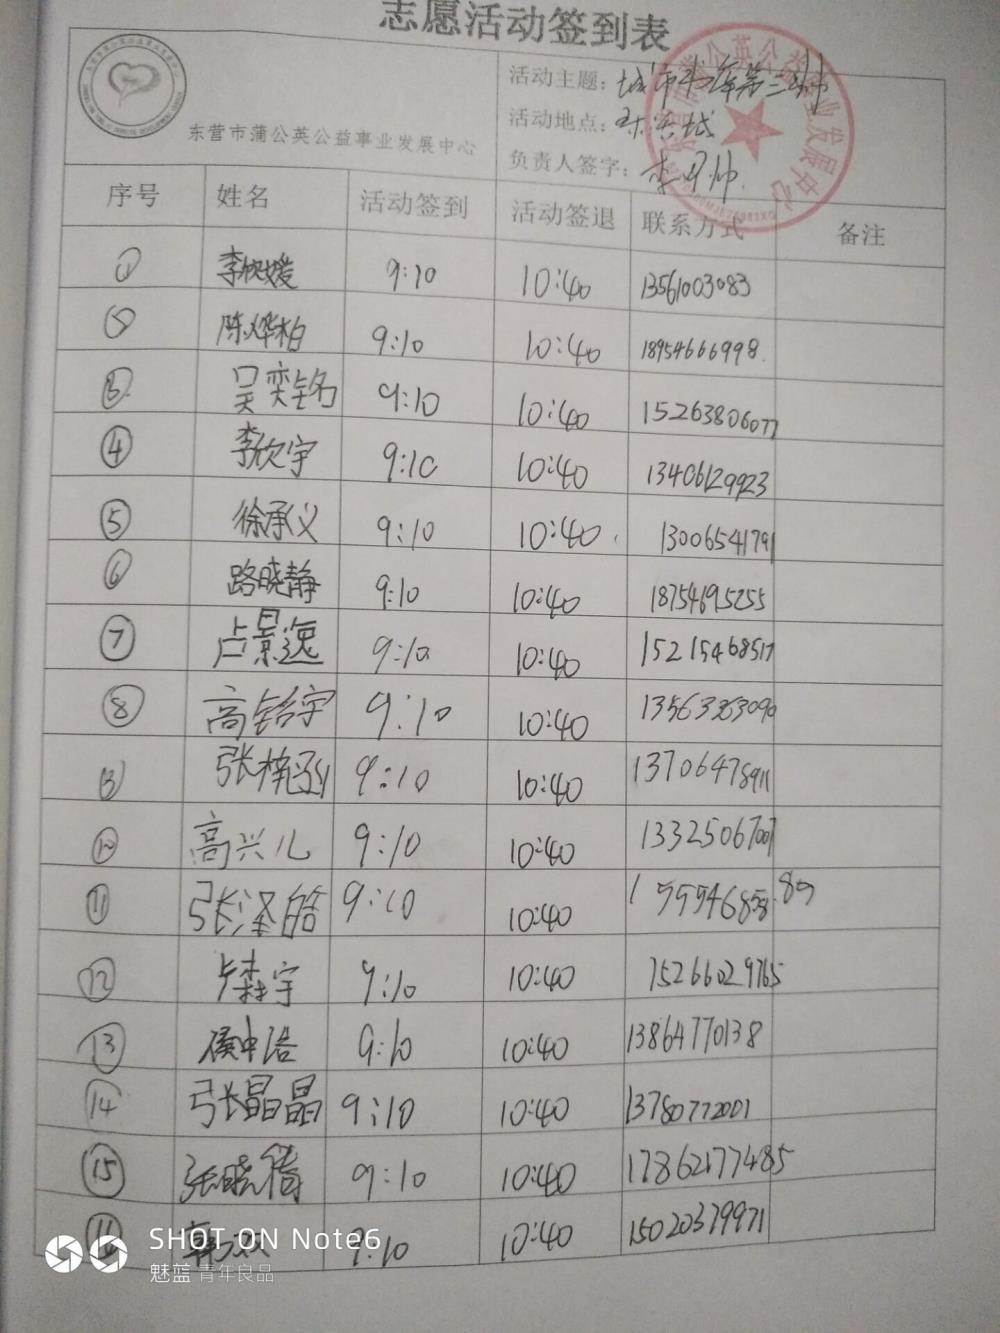 志愿活动签到表
东营市蒲公英公益事业发展中心
活动主题：城市
活动地点：
负责人签字：李
序号 姓名 活动签到 活动签退 联系方式 备注
① 李欣媛 9:10 10:40 13561003083
陈烨柏 9:10 10:40 18954666998
③ 吴奕铭 9:10 10:40 15263806077
④ 李欣宇 9:10 10:40 13406129923
⑤ 徐承义 9:10 10:40 13006541791
⑥ 路晓静 9:10 10:40 18754695255
⑦ 占景逸 9:10 10:40 15215468517
⑧ 高铭宇 9:10 10:40 13563353090
张梓 9:10 10:40 13706478911
⑩ 高兴儿 9:10 10:40 13325067007
⑪ 张泽皓 9:10 10:40
⑫ 宇 9:10 10:40 15266029765
⑬ 侯中浩 9:10 10:40 13864770138
⑭ 张晶晶 9:10 10:40 13780772001
⑮ 张晓倩 9:10 10:40 17862177485
⑯ 9:10 10:40 15020379971
SHOT ON Note6
魅蓝 青年良品